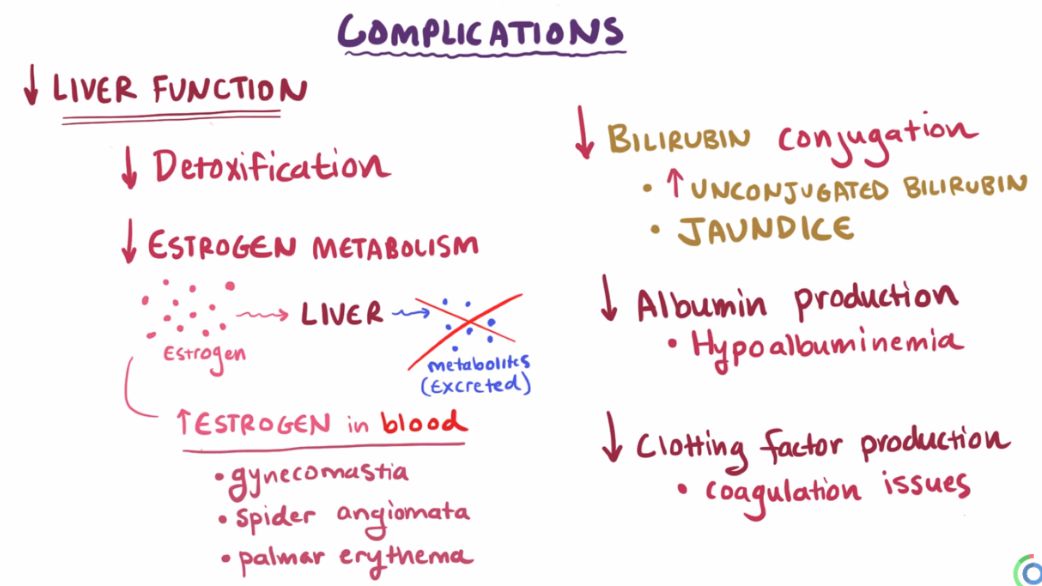 COMPLICATIONS
↓ LIVER FUNCTION
↓ Detoxification
↓ ESTROGEN METABOLISM
Estrogen
→ LIVER →
metabolites
(Excreted)
↑ ESTROGEN in blood
• gynecomastia
• spider angiomata
• palmar erythema
↓ BILIRUBIN conjugation
• ↑ UNCONJUGATED BILIRUBIN
• JAUNDICE
↓ Albumin production
• Hypoalbuminemia
↓ Clotting factor production
• coagulation issues